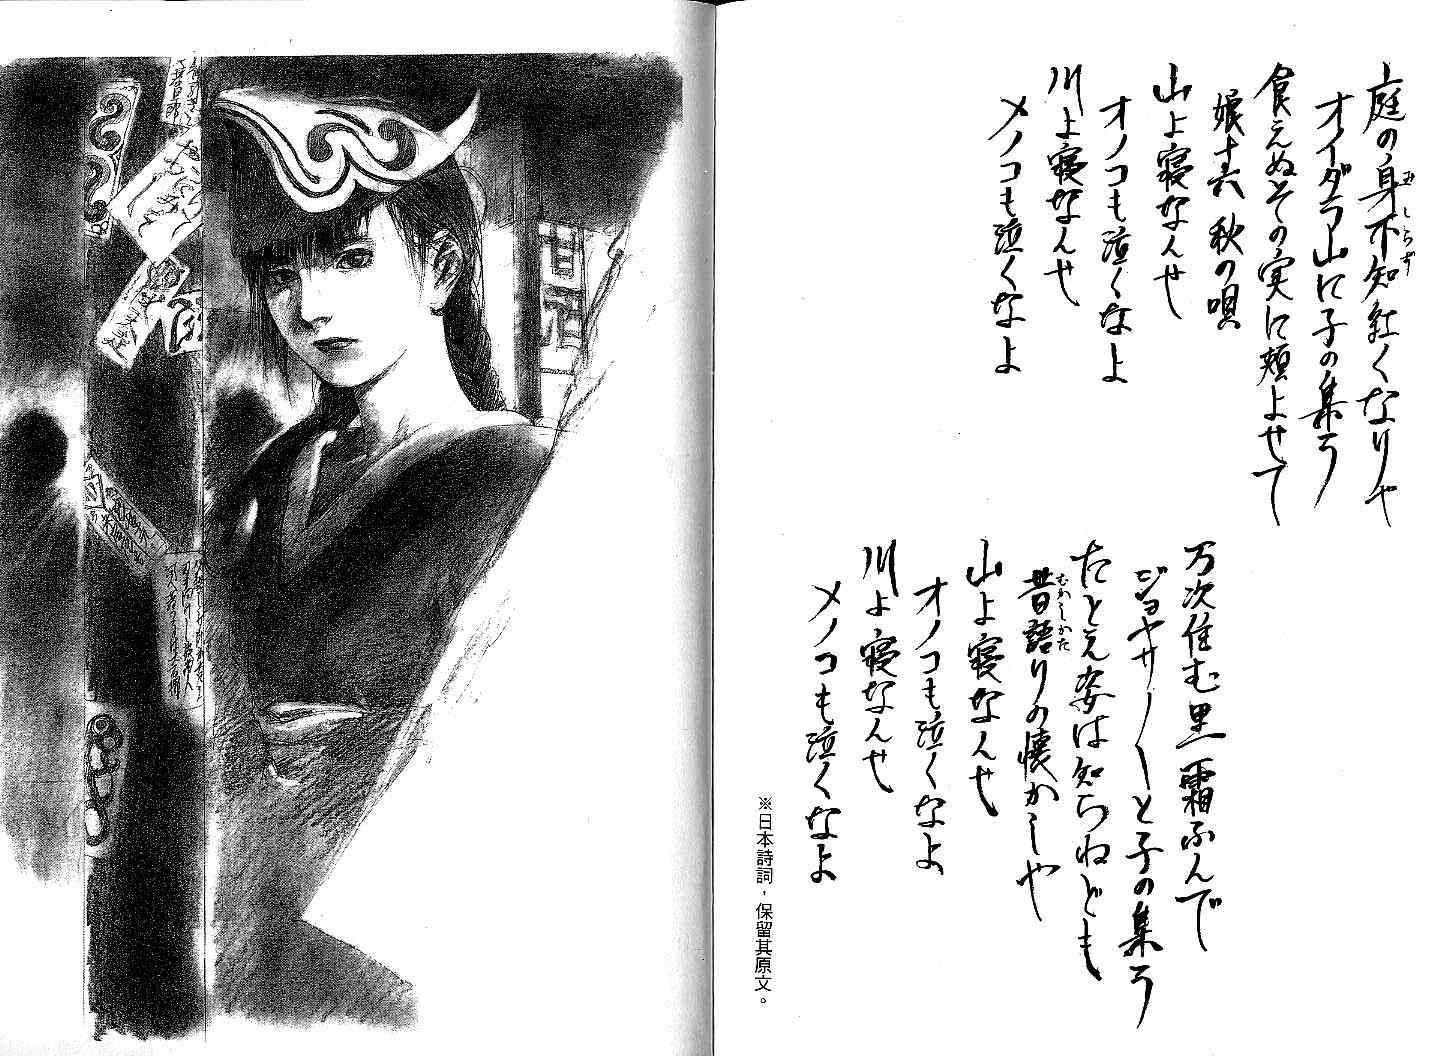 庭の身不知紅くなりや
オイダラ山に子の集う
食えぬその実に頬よせて
娘十六 秋の唄
山よ寝なんせ
オノコも泣くなよ
川よ寝なんせ
メノコも泣くなよ
万次住む里 霜ふんで
ジョヤサーーと子の集う
たとえ姿は知らねども
昔語りの懐かしや
山よ寝なんせ
オノコも泣くなよ
川よ寝なんせ
メノコも泣くなよ
※日本詩詞，保留其原文。